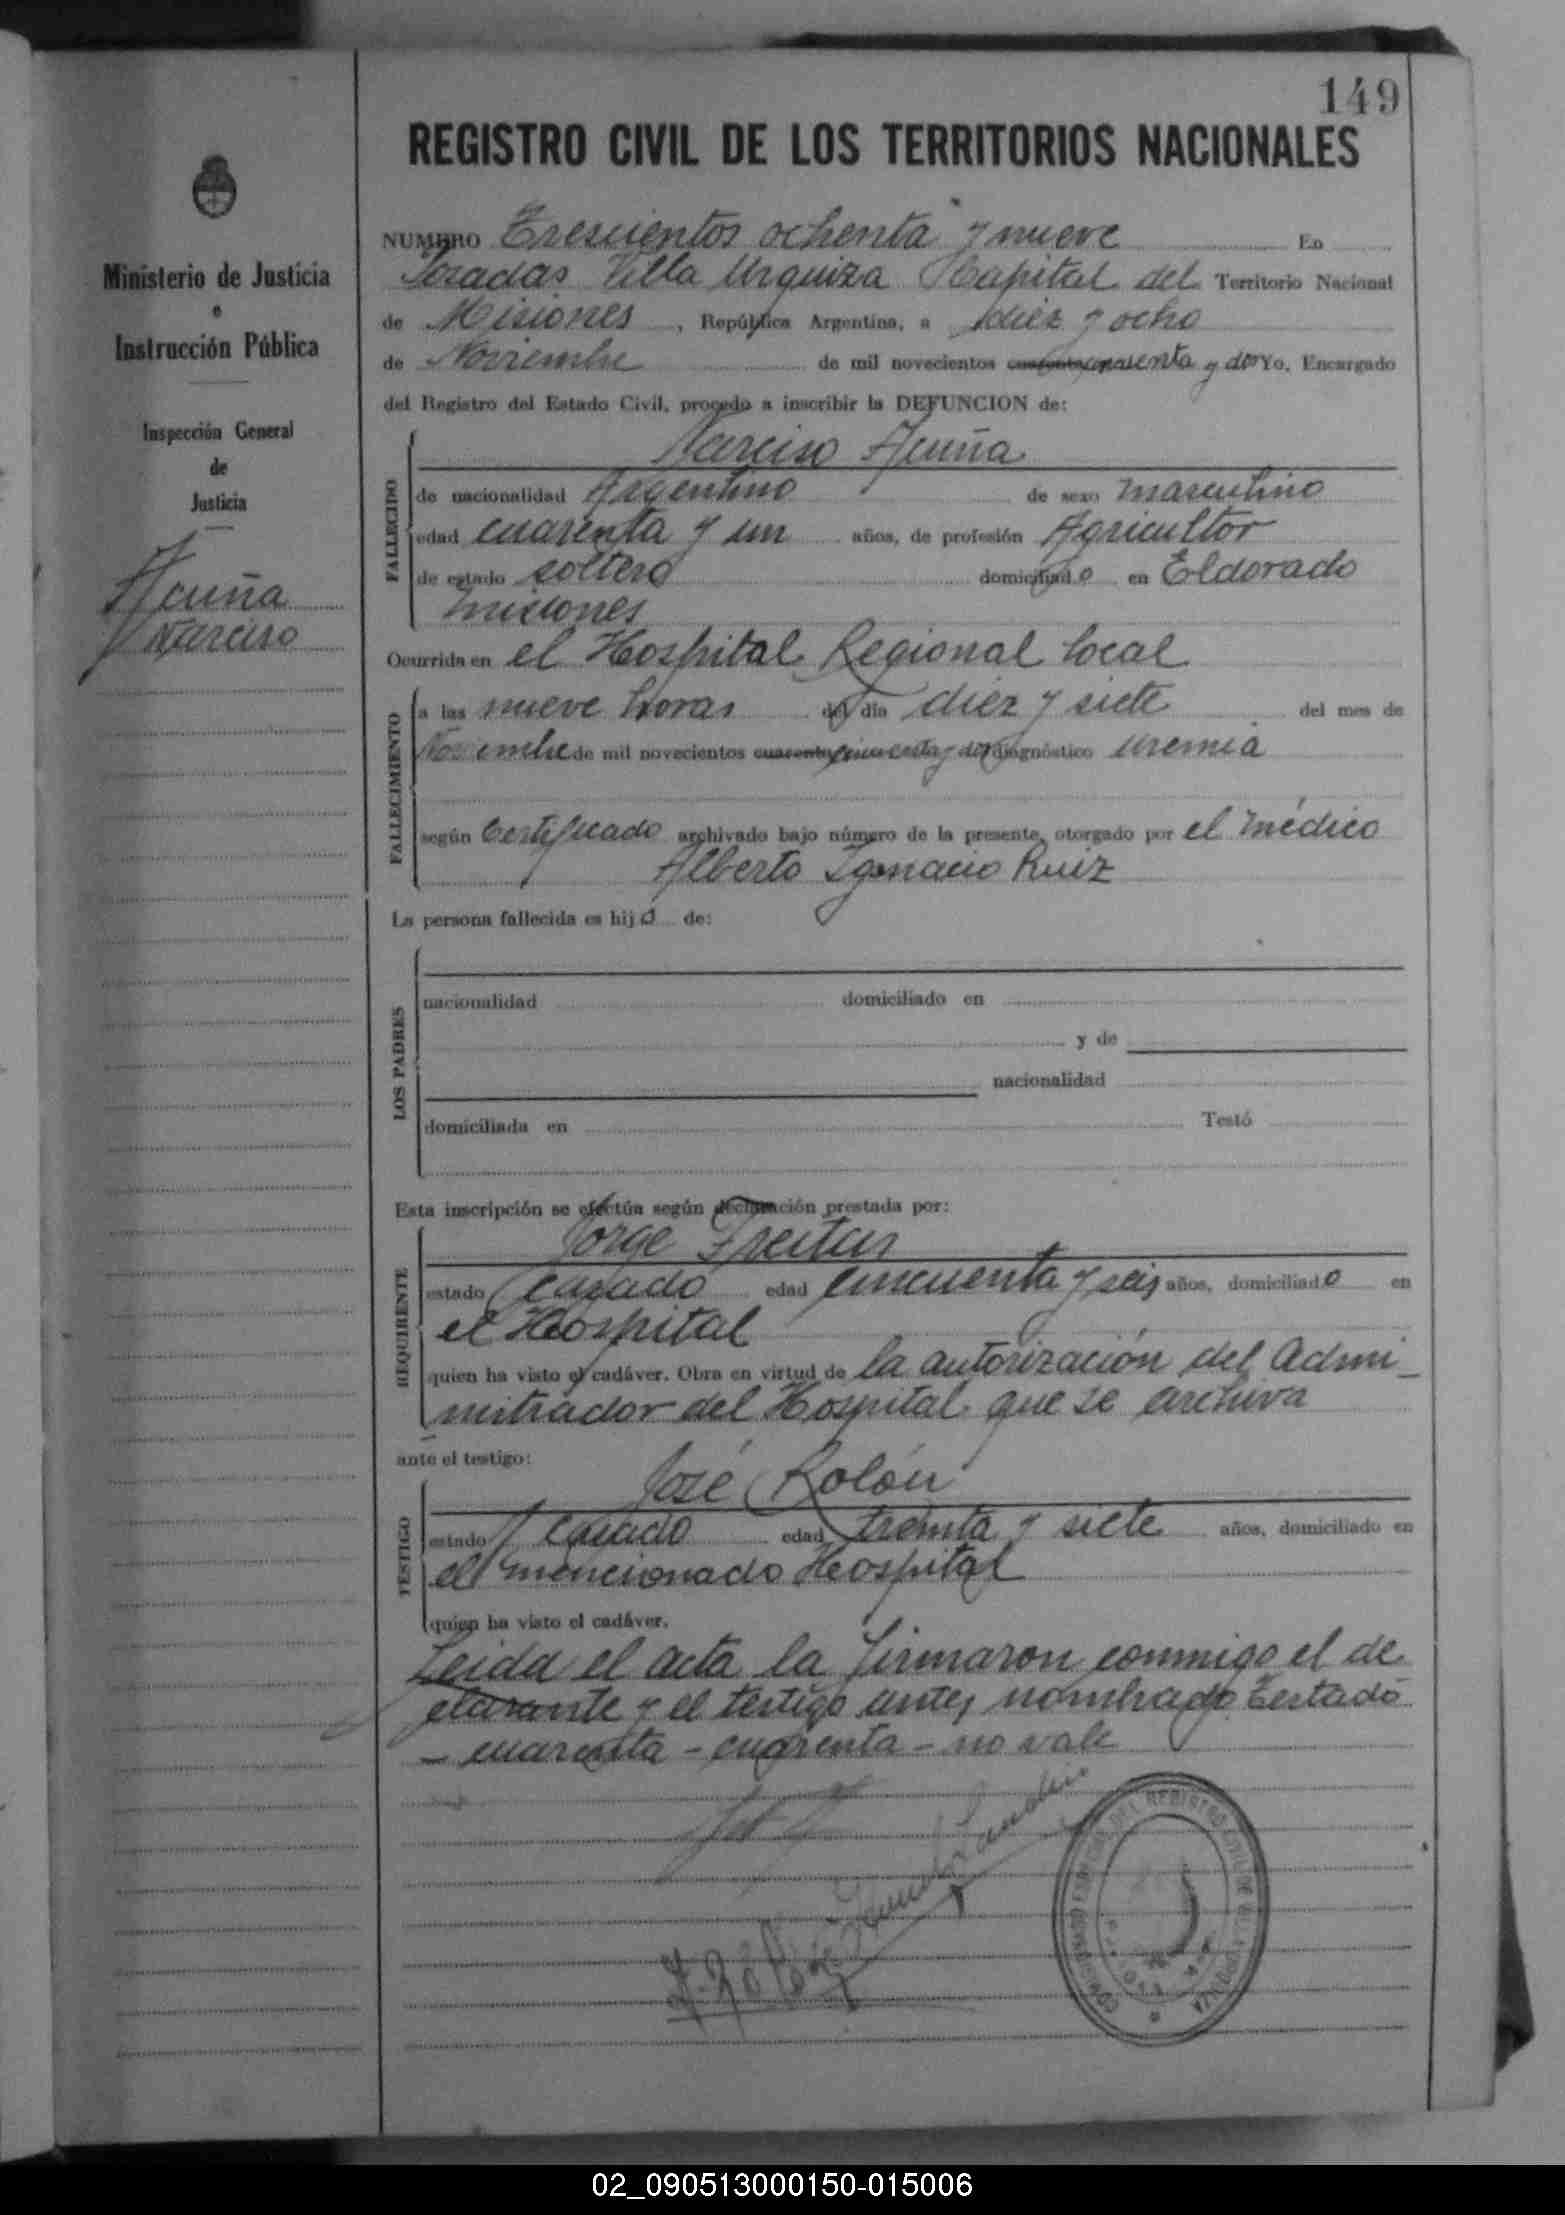 149
REGISTRO CIVIL DE LOS TERRITORIOS NACIONALES
Ministerio de Justicia
e
Instrucción Pública
Inspección General
de
Justicia
Acuña
Narciso
NUMERO Trescientos ochenta y nueve En
Posadas Villa Urquiza Capital del Territorio Nacional
de Misiones, República Argentina, a diez y ocho
de Noviembre de mil novecientos cuarenta cincuenta y dos Yo, Encargado
del Registro del Estado Civil, procedo a inscribir la DEFUNCION de:
FALLECIDO
Narciso Acuña
de nacionalidad Argentino de sexo masculino
edad cuarenta y un años, de profesión Agricultor
de estado soltero domiciliado en Eldorado
Misiones
Ocurrida en el Hospital Regional local
FALLECIMIENTO
a las nueve horas del día diez y siete del mes de
Noviembre de mil novecientos cuarenta cincuenta y dos diagnóstico uremia
según Certificado archivado bajo número de la presente, otorgado por el médico
Alberto Ignacio Ruiz
La persona fallecida es hijo de:
LOS PADRES
nacionalidad domiciliado en
y de
nacionalidad
domiciliada en Testó
Esta inscripción se efectúa según declaración prestada por:
REQUIRENTE
Jorge Freitas
estado casado edad cincuenta y seis años, domiciliado en
el Hospital
quien ha visto el cadáver. Obra en virtud de la autorización del Admi-
nistrador del Hospital que se archiva
ante el testigo:
TESTIGO
José Rolón
estado casado edad treinta y siete años, domiciliado en
el mencionado Hospital
quien ha visto el cadáver.
Leida el acta la firmaron conmigo el de-
clarante y el testigo antes nombrado Testado
- cuarenta - cuarenta - no vale
DEL REGISTRO CIVIL DE VILLA URQUIZA
02_090513000150-015006